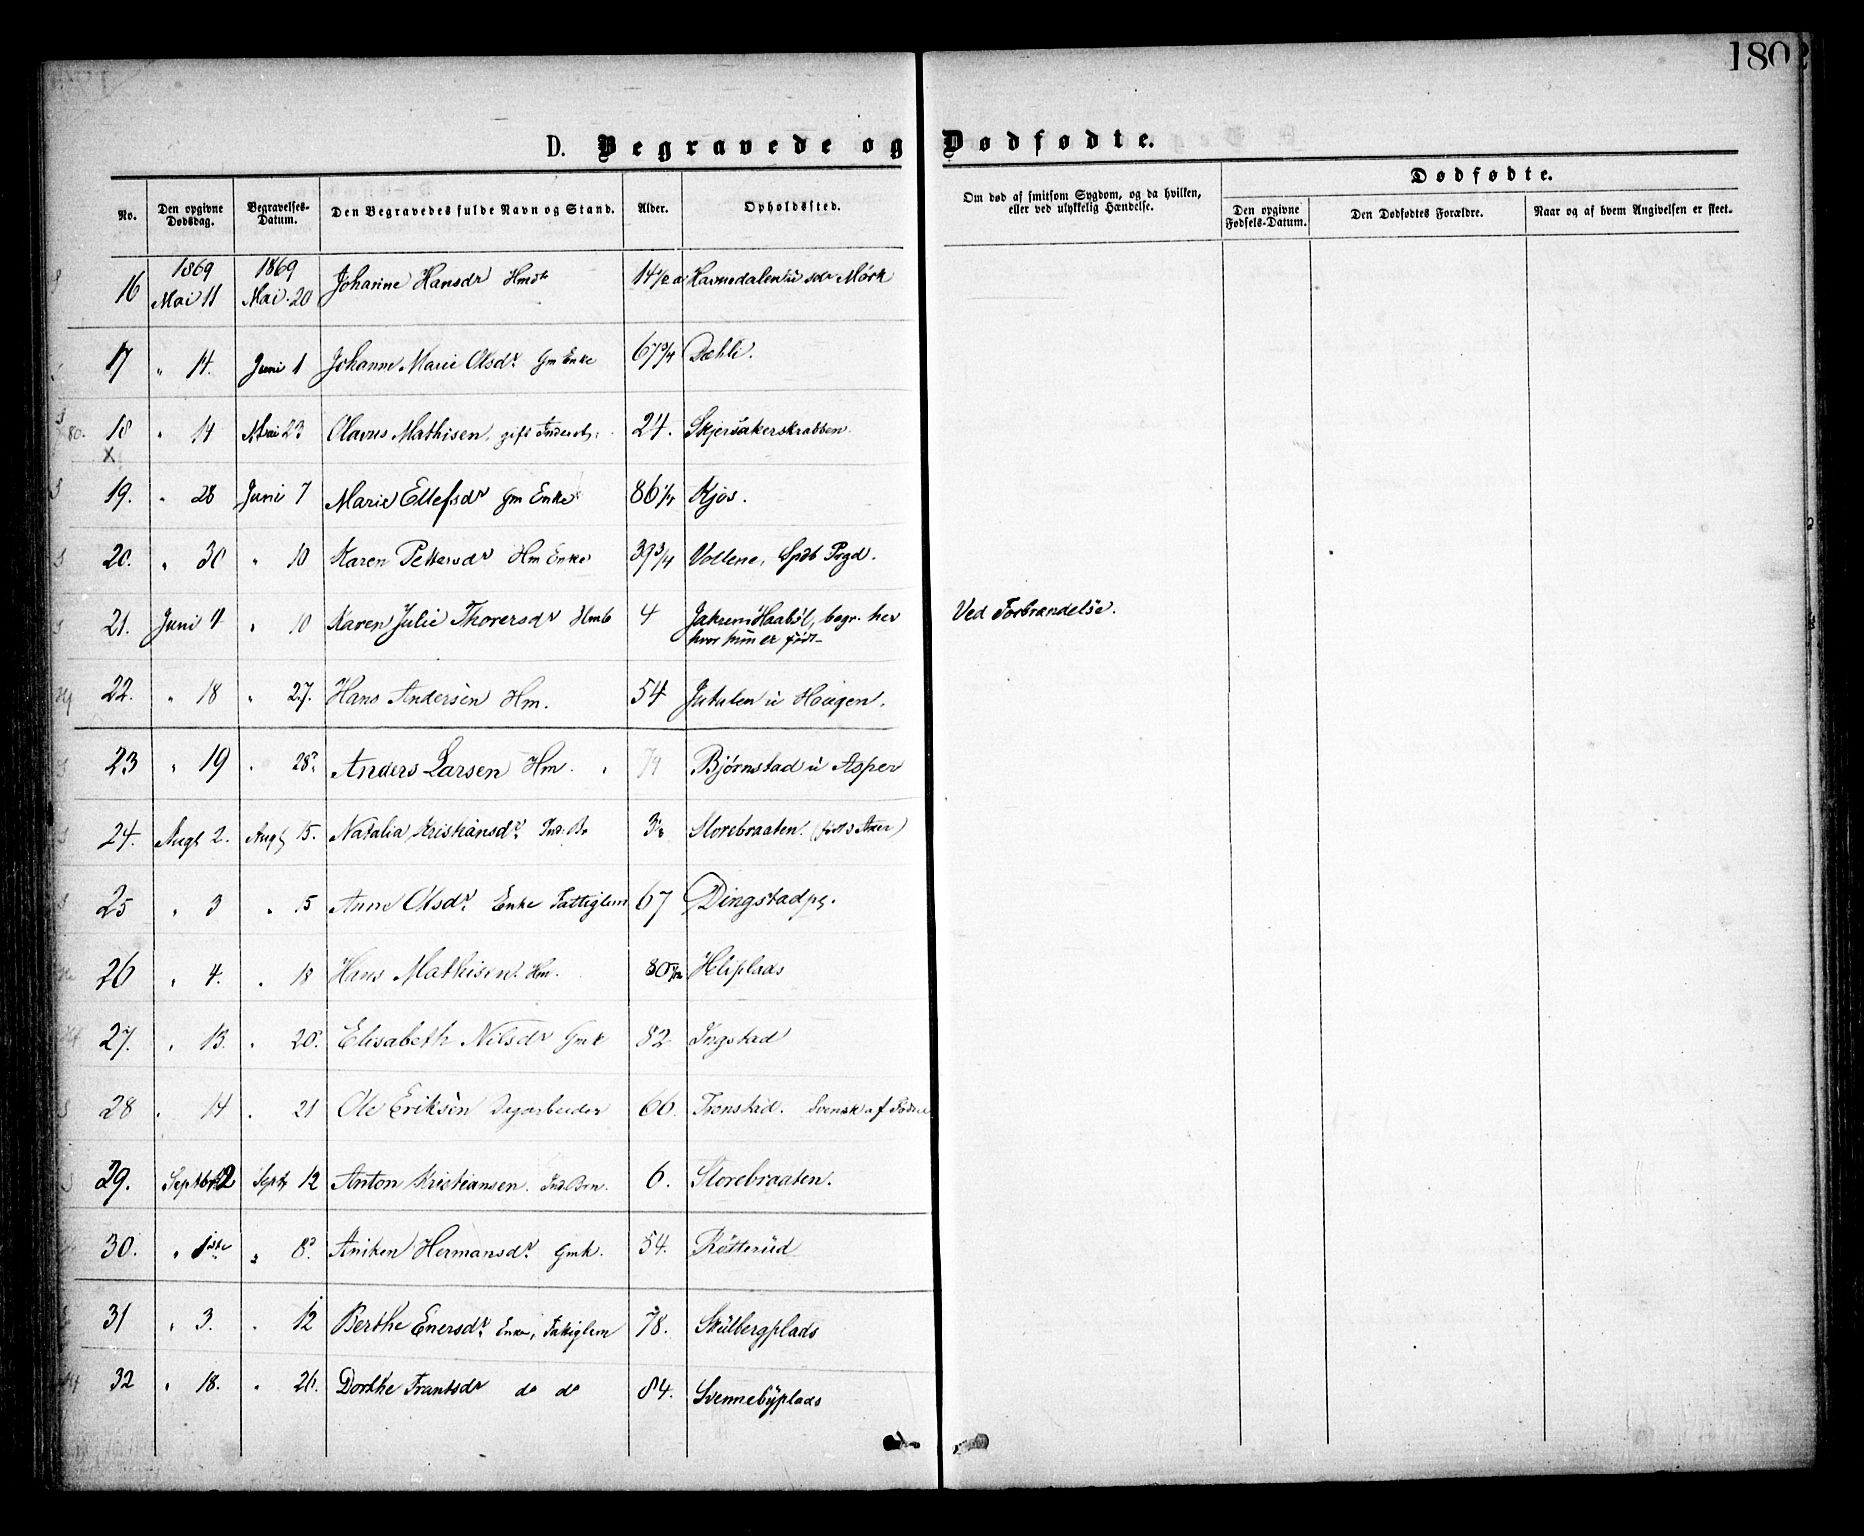 180
D. Begravede og Dødfødte.
No. Den opgivne Dødsdag. Begravelses-Datum. Den Begravedes fulde Navn og Stand. Alder. Opholdssted. Om død af smitsom Sygdom, og da hvilken, eller ved ulykkelig Hændelse. Dødfødte.
Den opgivne Fødsels-Datum. Den Dødfødtes Forældre. Naar og af hvem Angivelsen er skeet.
1869 1869
16 Mai 11 Mai 20 Johanne Hansdr 14 1/2 u sdr Mørk
17 " 14. Juni 1 Johanne Marie Olsdr. Gm Enke 67 3/4 Dæhli.
18 " 14 Mai 23 Olavus Mathisen, gift 24. Skjersakerskrabben.
X
19. " 28 Juni 7 Marie Ellefsdr Gm Enke 86 1/4 Kjos.
20. " 30 " 10 Karen Pettersdr Hm Enke 39 3/4 Vollene, Spdb Prgd.
21. Juni 4 " 10 Karen Julie Thoresdr Hmb 4 Haabøl, begr. her Ved Forbrændelse.
hvor hun er født
22. " 18 " 27. Hans Andersen Hm. 54 Jutulen u Haugen.
23 " 19 " 28. Anders Larsen Hm. 74 Bjørnstad u Asper
24. Augt 2. Augt 15. Natalia Kristiansdr. Ind. Bn 3 Storebraaten. (født i Aker)
25 " 3 " 15 Anne Olsdr. Enke Fattiglem 67 Dingstadpl.
26 " 4. " 18 Hans Mathisen. Hm. 80 Hliplads
27. " 13. " 20. Elisabeth Nilsdr Gmk 82. Ingstad
28 " 14 " 21 Ole Eriksen Dagarbeider 66. Tronstad. Svensk af Fødsel
29. Septbr 2 Septr 12 Anton Kristiansen. Ind. Brn. 6. Storebraaten.
30. " 1ste " 8. Aniken Hermansdr. Gmk. 54. Røtterud
31 " 3. " 12 Berthe Enersdr. Enke, Fattiglem 78. Skulbergplads
32 " 18. " 26. Dorthe Frantsdr do do 84. Svennebyplads